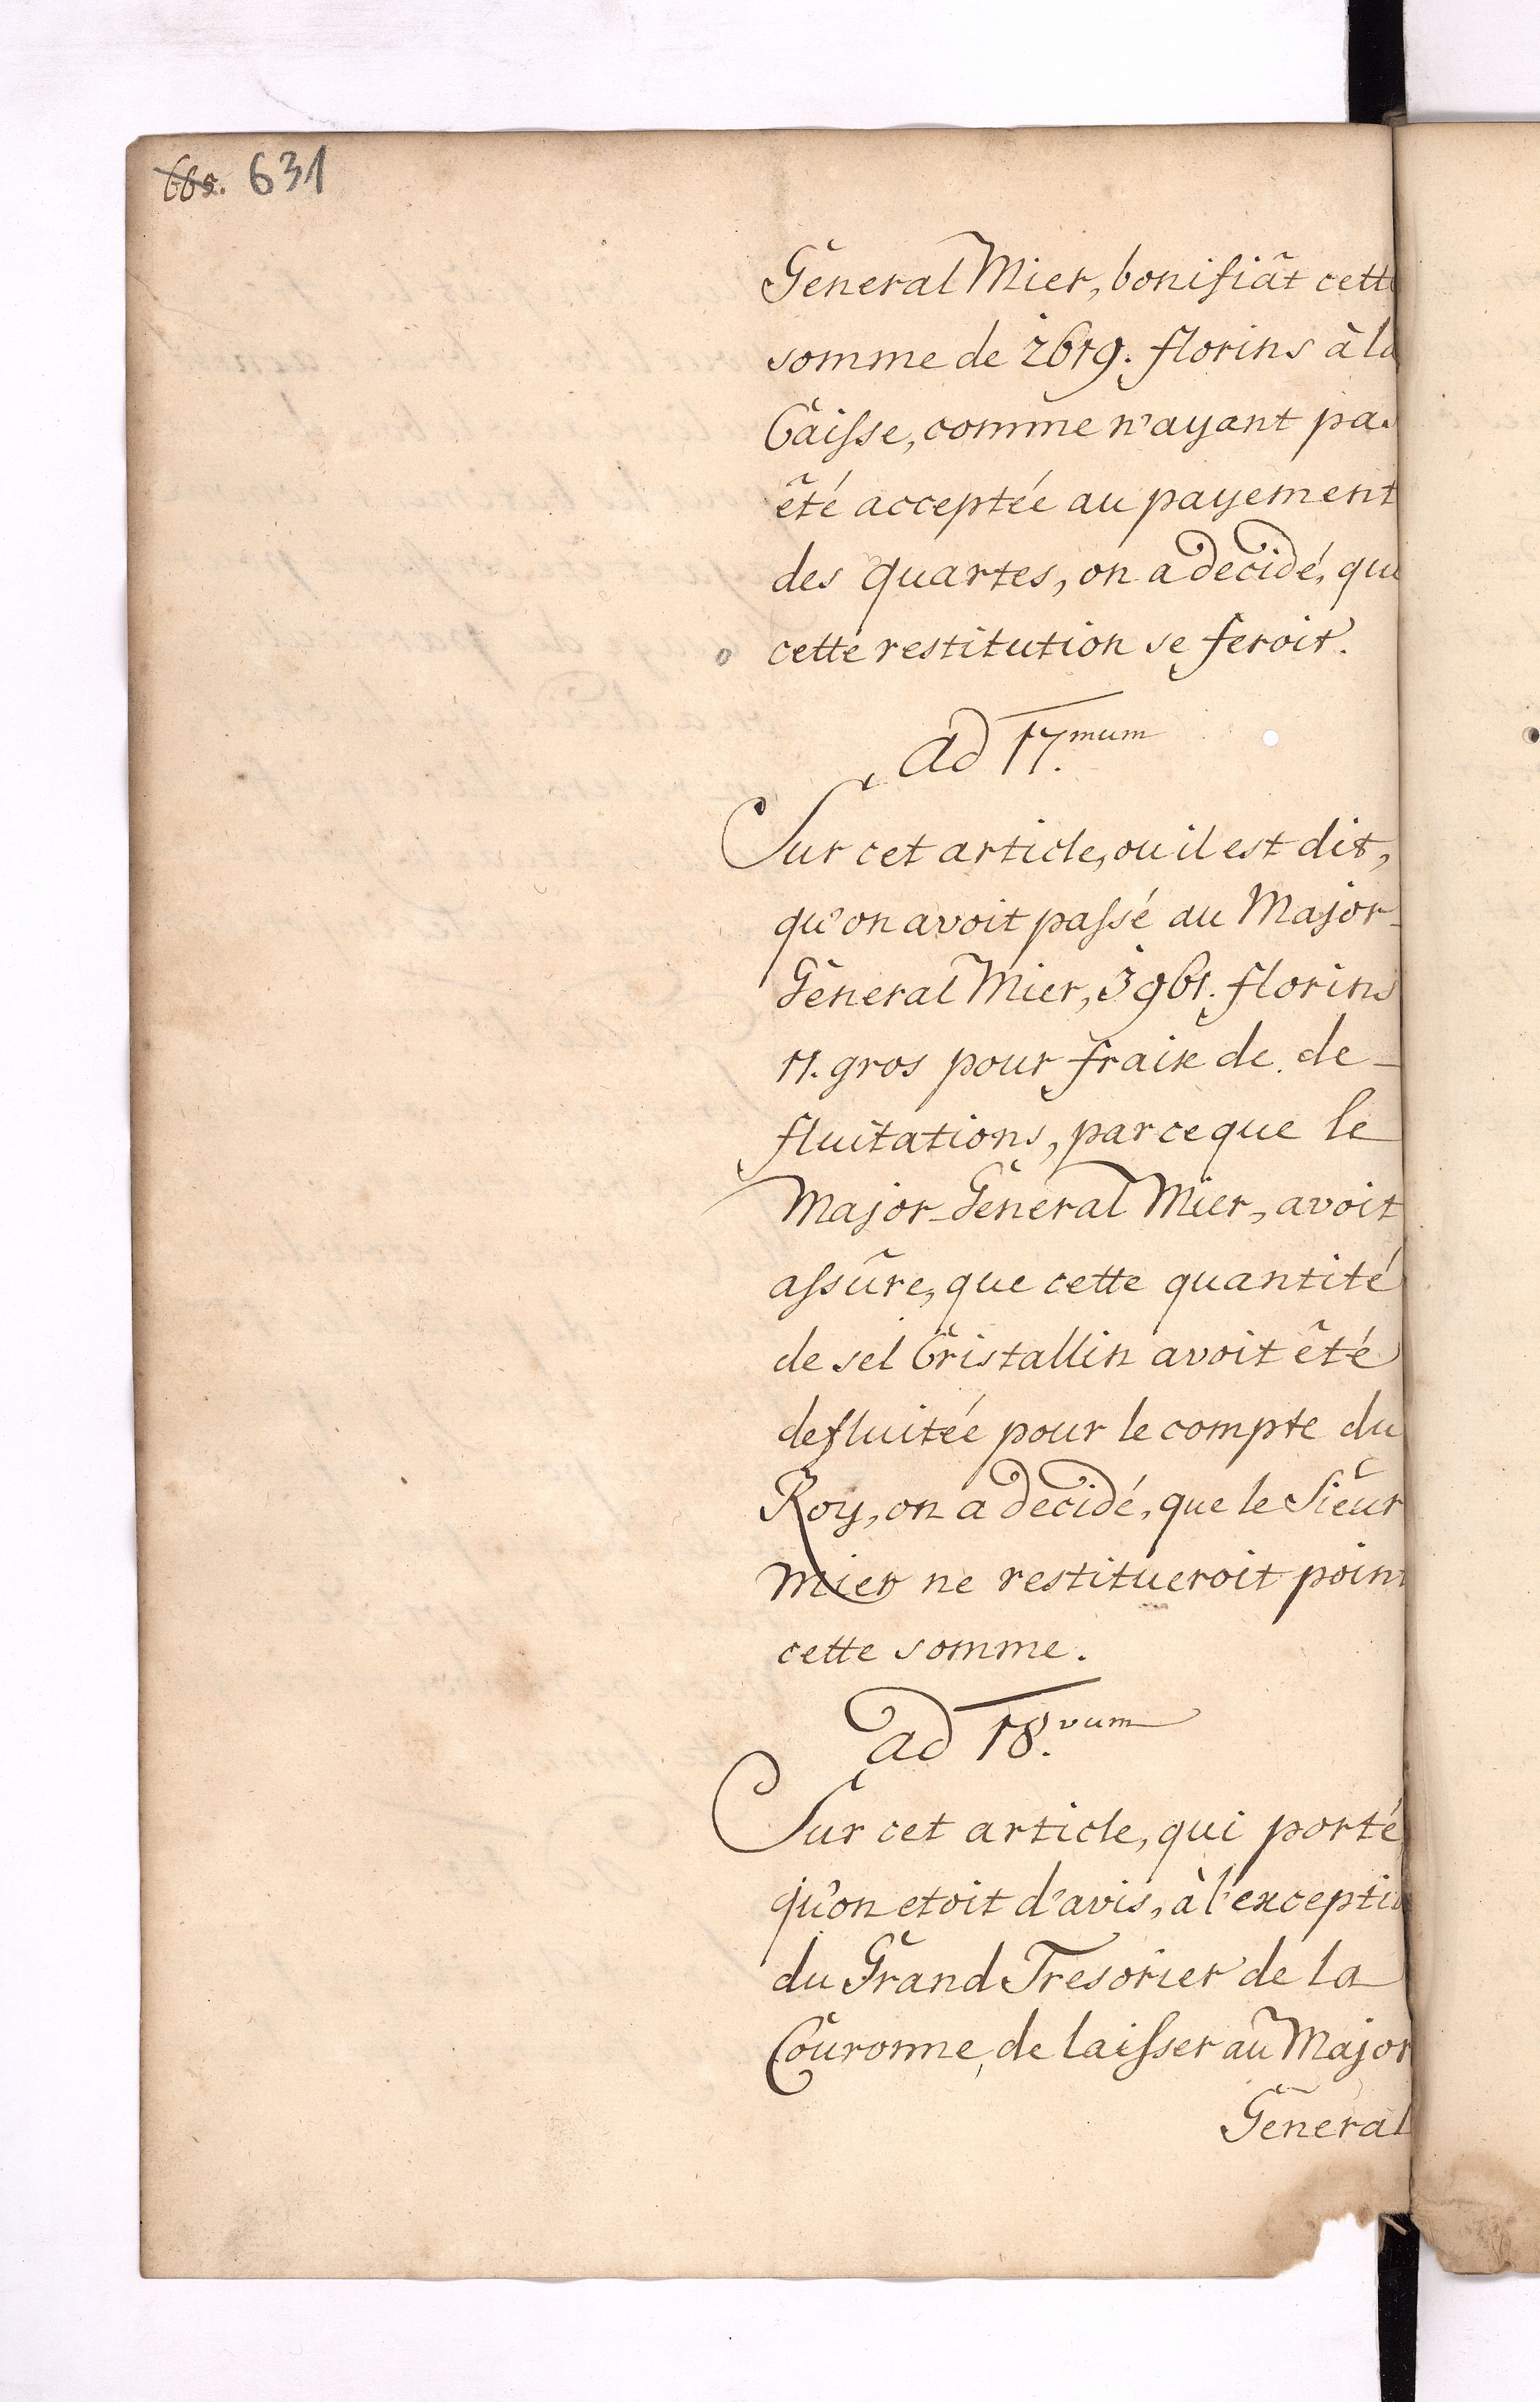 665. 631
General Mier, bonifiât cette
somme de 2619. florins à la
Caisse, comme n'ayant pas
été acceptée au payement
des quartes, on a decidé, que
cette restitution se feroit.
ad 17.mum
Sur cet article, ou il est dit,
qu'on avoit passé au Major-
General Mier, 3961. florins
11. gros pour fraix de de-
fluitations, parceque le
Major-General Mier, avoit
assûre, que cette quantité
de sel Cristallin avoit été
defluitée pour le compte du
Roy, on a decidé, que le Sieur
Mier ne restitueroit point
cette somme.
ad 18.vum
Sur cet article, qui porté
qu'on etoit d'avis, à l'exceptio
du Grand Tresorier de la
Couronne, de laisser au Major
General